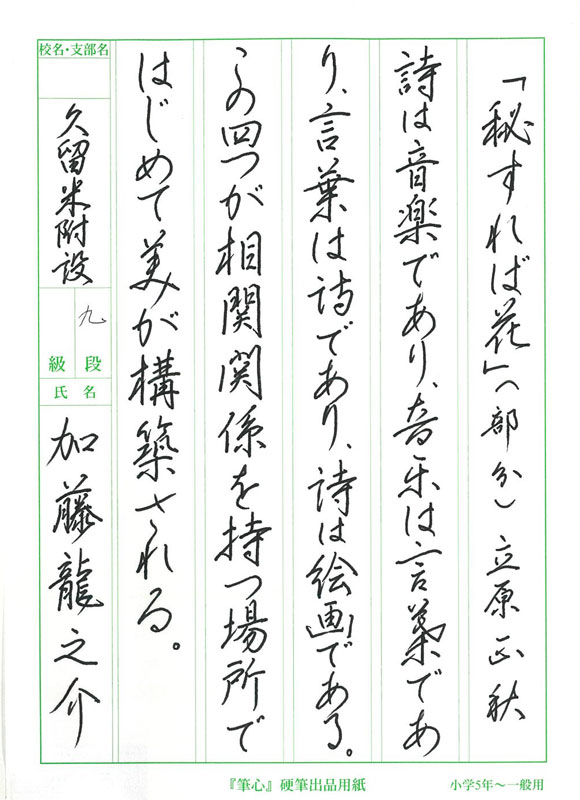 「秘すれば花」(部分) 立原正秋
詩は音楽であり、音楽は言葉であ
り、言葉は詩であり、詩は絵画である。
この四つが相関関係を持つ場所で
はじめて美が構築される。
校名・支部名
久留米附設
九
級 段
氏 名
加藤龍之介
『筆心』硬筆出品用紙
小学5年〜一般用